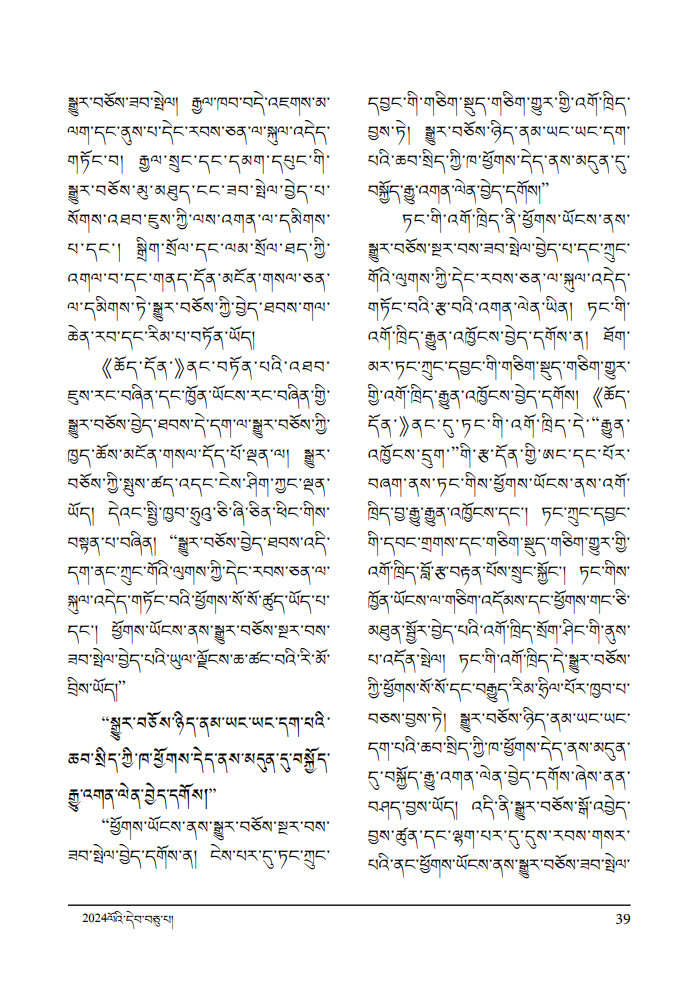 སྒྱུར་བཅོས་ཟབ་སྤེལ། རྒྱལ་ཁབ་བདེ་འཇགས་མ་
ལག་དང་ནུས་པ་དེང་རབས་ཅན་ལ་སྐུལ་འདེད་
གཏོང་བ། རྒྱལ་སྲུང་དང་དམག་དཔུང་གི་
སྒྱུར་བཅོས་མུ་མཐུད་ངང་ཟབ་སྤེལ་བྱེད་པ་
སོགས་འཐབ་ཇུས་ཀྱི་ལས་འགན་ལ་དམིགས་
པ་དང་། སྒྲིག་སྲོལ་དང་ལམ་སྲོལ་ཐད་ཀྱི་
འགལ་བ་དང་གནད་དོན་མངོན་གསལ་ཅན་
ལ་དམིགས་ཏེ་སྒྱུར་བཅོས་ཀྱི་བྱེད་ཐབས་གལ་
ཆེན་རབ་དང་རིམ་པ་བཏོན་ཡོད།
《ཆོད་དོན་》ནང་བཏོན་པའི་འཐབ་
ཇུས་རང་བཞིན་དང་ཁྱོན་ཡོངས་རང་བཞིན་གྱི་
སྒྱུར་བཅོས་བྱེད་ཐབས་དེ་དག་ལ་སྒྱུར་བཅོས་ཀྱི་
ཁྱད་ཆོས་མངོན་གསལ་དོད་པོ་ལྡན་ལ། སྒྱུར་
བཅོས་ཀྱི་སྤུས་ཚད་འདང་ངེས་ཤིག་ཀྱང་ལྡན་
ཡོད། དེའང་སྤྱི་ཁྱབ་ཧྲུའུ་ཅི་ཞི་ཅིན་ཕིང་གིས་
བསྟན་པ་བཞིན། “སྒྱུར་བཅོས་བྱེད་ཐབས་འདི་
དག་ནང་ཀྲུང་གོའི་ལུགས་ཀྱི་དེང་རབས་ཅན་ལ་
སྐུལ་འདེད་གཏོང་བའི་ཕྱོགས་སོ་སོ་ཚུད་ཡོད་པ་
དང་། ཕྱོགས་ཡོངས་ནས་སྒྱུར་བཅོས་སྔར་བས་
ཟབ་སྤེལ་བྱེད་པའི་ཡུལ་ལྗོངས་ཆ་ཚང་བའི་རི་མོ་
བྲིས་ཡོད།”
“སྒྱུར་བཅོས་ཉིད་ནམ་ཡང་ཡང་དག་པའི་
ཆབ་སྲིད་ཀྱི་ཁ་ཕྱོགས་དེད་ནས་མདུན་དུ་བསྐྱོད་
རྒྱུ་འགན་ལེན་བྱེད་དགོས།”
“ཕྱོགས་ཡོངས་ནས་སྒྱུར་བཅོས་སྔར་བས་
ཟབ་སྤེལ་བྱེད་དགོས་ན། ངེས་པར་དུ་ཏང་ཀྲུང་
དབྱང་གི་གཅིག་སྡུད་གཅིག་གྱུར་གྱི་འགོ་ཁྲིད་
བྱས་ཏེ། སྒྱུར་བཅོས་ཉིད་ནམ་ཡང་ཡང་དག་
པའི་ཆབ་སྲིད་ཀྱི་ཁ་ཕྱོགས་དེད་ནས་མདུན་དུ་
བསྐྱོད་རྒྱུ་འགན་ལེན་བྱེད་དགོས།”
ཏང་གི་འགོ་ཁྲིད་ནི་ཕྱོགས་ཡོངས་ནས་
སྒྱུར་བཅོས་སྔར་བས་ཟབ་སྤེལ་བྱེད་པ་དང་ཀྲུང་
གོའི་ལུགས་ཀྱི་དེང་རབས་ཅན་ལ་སྐུལ་འདེད་
གཏོང་བའི་རྩ་བའི་འགན་ལེན་ཡིན། ཏང་གི་
འགོ་ཁྲིད་རྒྱུན་འཁྱོངས་བྱེད་དགོས་ན། ཐོག་
མར་ཏང་ཀྲུང་དབྱང་གི་གཅིག་སྡུད་གཅིག་གྱུར་
གྱི་འགོ་ཁྲིད་རྒྱུན་འཁྱོངས་བྱེད་དགོས། 《ཆོད་
དོན་》ནང་དུ་ཏང་གི་འགོ་ཁྲིད་དེ་“རྒྱུན་
འཁྱོངས་དྲུག་”གི་རྩ་དོན་གྱི་ཨང་དང་པོར་
བཞག་ནས་ཏང་གིས་ཕྱོགས་ཡོངས་ནས་འགོ་
ཁྲིད་བྱ་རྒྱུ་རྒྱུན་འཁྱོངས་དང་། ཏང་ཀྲུང་དབྱང་
གི་དབང་གྲགས་དང་གཅིག་སྡུད་གཅིག་གྱུར་གྱི་
འགོ་ཁྲིད་བློ་རྩ་བརྟན་པོས་སྲུང་སྐྱོང་། ཏང་གིས་
ཁྱོན་ཡོངས་ལ་གཅིག་འདོམས་དང་ཕྱོགས་གང་ཅི་
མཐུན་སྦྱོར་བྱེད་པའི་འགོ་ཁྲིད་སྲོག་ཤིང་གི་ནུས་
པ་འདོན་སྤེལ། ཏང་གི་འགོ་ཁྲིད་དེ་སྒྱུར་བཅོས་
ཀྱི་ཕྱོགས་སོ་སོ་དང་བརྒྱུད་རིམ་ཧྲིལ་པོར་ཁྱབ་པ་
བཅས་བྱས་ཏེ། སྒྱུར་བཅོས་ཉིད་ནམ་ཡང་ཡང་
དག་པའི་ཆབ་སྲིད་ཀྱི་ཁ་ཕྱོགས་དེད་ནས་མདུན་
དུ་བསྐྱོད་རྒྱུ་འགན་ལེན་བྱེད་དགོས་ཞེས་ནན་
བཤད་བྱས་ཡོད། འདི་ནི་སྒྱུར་བཅོས་སྒོ་འབྱེད་
བྱས་ཚུན་དང་ལྷག་པར་དུ་དུས་རབས་གསར་
པའི་ནང་ཕྱོགས་ཡོངས་ནས་སྒྱུར་བཅོས་ཟབ་སྤེལ་
2024ལོའི་དེབ་བཅུ་པ། 39